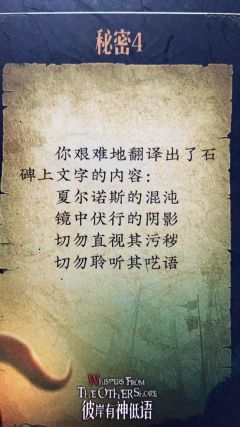 秘密4
你艰难地翻译出了石
碑上文字的内容：
夏尔诺斯的混沌
镜中伏行的阴影
切勿直视其污秽
切勿聆听其呓语
WHISPERS FROM
THE OTHER SHORE
彼岸有神低语